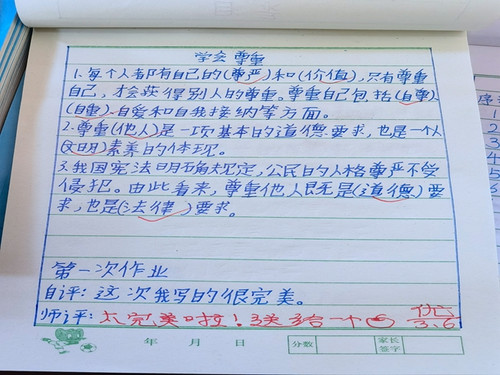 学会 尊重
1.每个人都有自己的(尊严)和(价值),只有尊重
自己,才会获得别人的尊重。尊重自己包括(自尊)、
(自重)、自爱和自我接纳等方面。
2.尊重(他人)是一项基本的道德要求,也是一个人
(文明)素养的体现。
3.我国宪法明确规定,公民的人格尊严不受
侵犯。由此看来,尊重他人既是(道德)要
求,也是(法律)要求。
第一次作业
自评:这次我写的很完美。
师评:太完美啦!送给一个
优
3.6
年 月 日 分数 家长签字